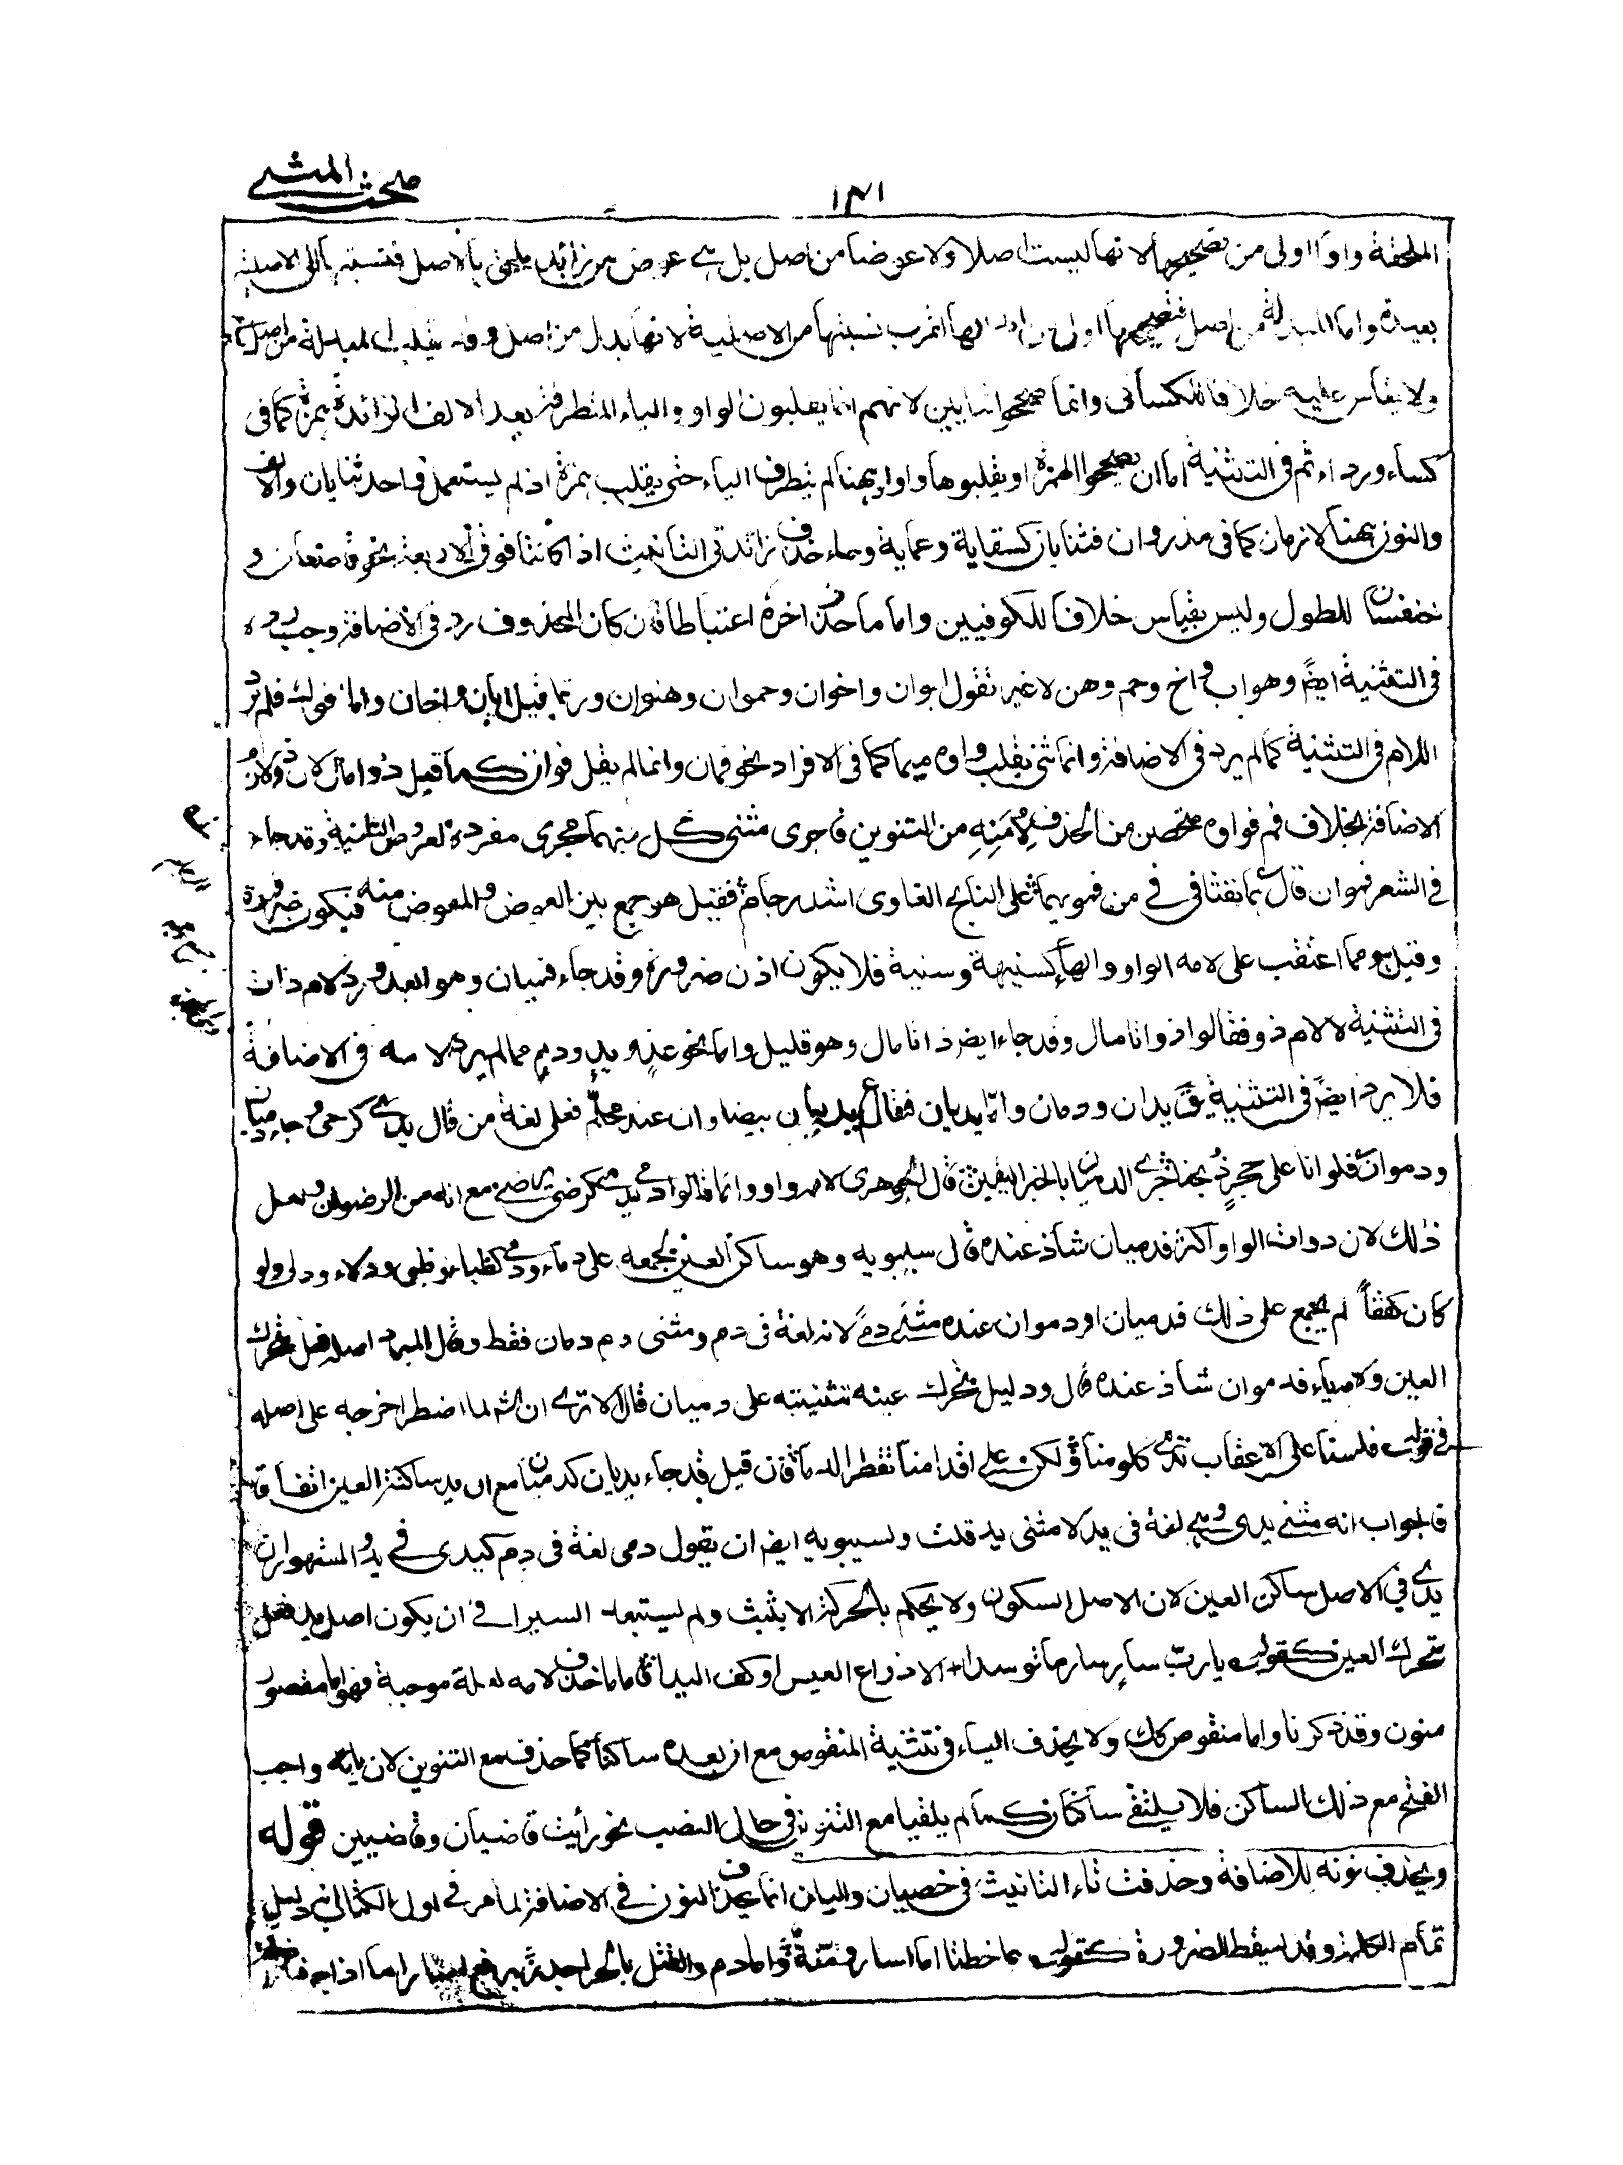 مبحث المثنى
الملحقة واوا اولى من تصحيحها لانها ليست اصلا ولا عوضا من اصل بل هي عوض من زائد ملحق بالاصل فنسبتها الى الاصلية
بعيدة واما المبدلة من اصل فتصحيحها اولى من لانها اقرب نسبتها من الاصلية لانها بدل من اصل وقد تقلب المبدلة من اصل ياء
ولا يقاس عليه خلافا للكسائي وانما صححوا ثنايين لانهم انما يقلبون الواو والياء المتطرفة بعد الالف الزائدة همزة كما في
كساء ورداء ثم في التثنية اما ان يصححوا الهمزة او يقلبوها واوا وههنا لم يتطرف الياء حتى يقلب همزة اذ لم يستعمل واحد ثنايان والالف
والنون ههنا لازمان كما في مذروان فثنايان كسقاية وعماية وجاء حذف زائدتي التانيث اذا كانتا فوق الاربعة نحو قاصعان و
خنفسان للطول وليس بقياس خلافا للكوفيين واما ما حذف اخره اعتباطا فان كان المحذوف رد في الاضافة وجب رده
في التثنية ايضا وهو اب واخ وحم وهن لا غير تقول ابوان واخوان وحموان وهنوان وربما قيل ابان واخان واما فوك فلم يرد
اللام في التثنية كما لم يرد في الاضافة وانما ثني بقلب واوه ميما كما في الافراد نحو فمان وانما لم يقل فوان كما قيل ذوا مال لان ذو لازم
الاضافة بخلاف فم فواوه متحصن من الحذف لامنه من التنوين فاجرى مثنى كل منهما مجرى مفرده لعروض التثنية وقد جاء
في الشعر فموان قال هما نفثا في في من فمويهما على النابح العاوى اشد رجام فقيل هو جمع بين العوض والمعوض منه فيكون ضرورة
وقيل هو مما اعتقب على لامه الواو والهاء كسنيهة وسنية فلا يكون اذن ضرورة وقد جاء فميان وهو ابعد ورد لام ذات
في التثنية لا لام ذو فقالوا ذواتا مال وقد جاء ايض ذاتا مال وهو قليل واما نحو غد ويد ودم مما لم يرد لامه في الاضافة
فلا يرد ايض في التثنية يق يدان ودمان واما يديان فقال ع يديان بيضاوان عند محلم فعلى لغة من قال يدى كرحى وجاء دميان
ودموان قال فلو انا على حجر ذبحنا جرى الدميان بالخبر اليقين قال الجوهرى لامه واو وانما قالوا دمي يدمى كرضي يرضى مع انه من الرضوان وحمل
ذلك لان ذوات الواو اكثر فدميان شاذ عنده قال سيبويه وهو ساكن العين لجمعه على دماء ودمي كظباء وظبي ودلاء ودلي ولو
كان كقفا لم يجمع على ذلك فدميان او دموان عنده مثنى دما لانه لغة في دم ومثنى دم دمان فقط وقال المبرد اصله فعل محرك
العين ولامه ياء فدموان شاذ عنده قال ودليل تحرك عينه تثنيته على دميان قال الا ترى ان الشاعر لما اضطر اخرجه على اصله
في قوله فلسنا على الاعقاب تدمى كلومنا ولكن على اقدامنا تقطر الدما فان قيل قد جاء يديان كدميان مع ان يد ساكنة العين اتفاقا
فالجواب انه مثنى يدى وهي لغة في يد لا مثنى يد قلت ولسيبويه ايض ان يقول دمى لغة في دم كيدى في يد والمشهور ان
يدى في الاصل ساكن العين لان الاصل السكون ولا يحكم بالحركة الا بثبت ولم يستبعد السيرافي ان يكون اصل يد فعل
متحرك العين كقوله يا رب سار سار ما توسدا الا ذراع العيس او كف اليدا فاما ما حذف لامه لعلة موجبة فهو اما مقصور
منون وقد ذكرنا واما منقوص كك ولا يحذف الياء في تثنية المنقوص مع ان بعده ساكنا كما حذف مع التنوين لان ياءه واجب
الفتح مع ذلك الساكن فلا يلتقى ساكنان كما لم يلتقيا مع التنوين في حال النصب نحو رأيت قاضيان وقاضيين قوله
ويحذف نونه للاضافة وحذفت تاء التانيث في خصيان واليان انما يحذف النون في الاضافة لما مر في اول الكتاب انه دليل
تمام الكلمة وقد يسقط للضرورة كقوله هما خطتا اما اسار ومنة واما دم والقتل بالحر اجدر